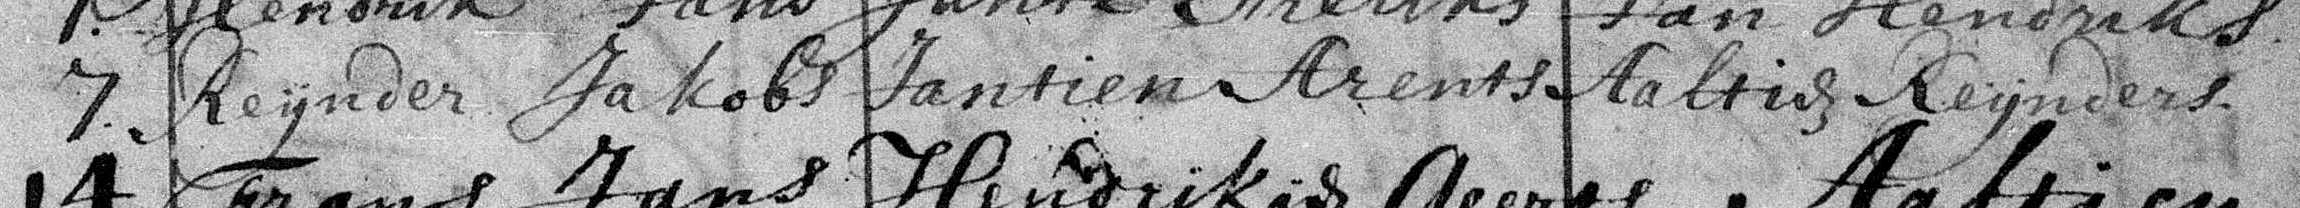 1. Hendrik Jans Jantie Freriks Jan Hendriks.
7. Reÿnder Jakobs Jantien Arents Aaltie Reÿnders.
14 Frans Jans Hendrikie Geerts. Aaltien